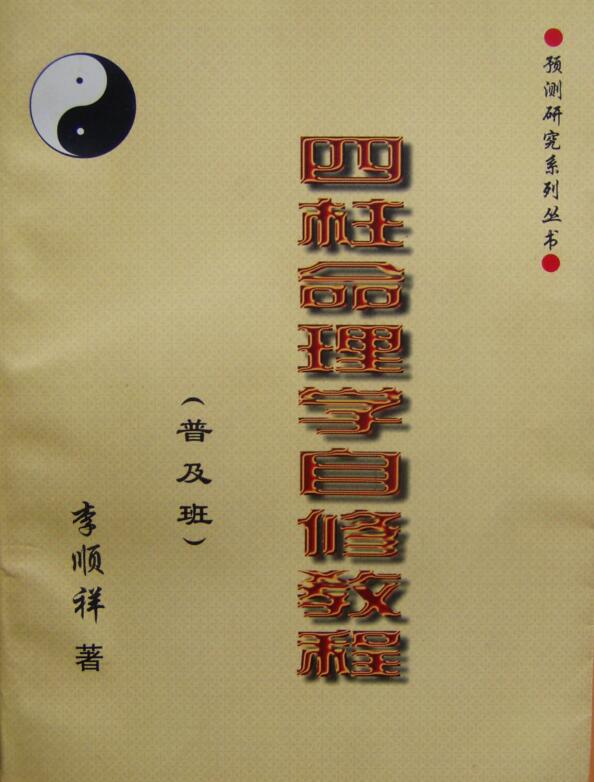 预测研究系列丛书
四柱命理学自修教程
（普及班）
李顺祥 著